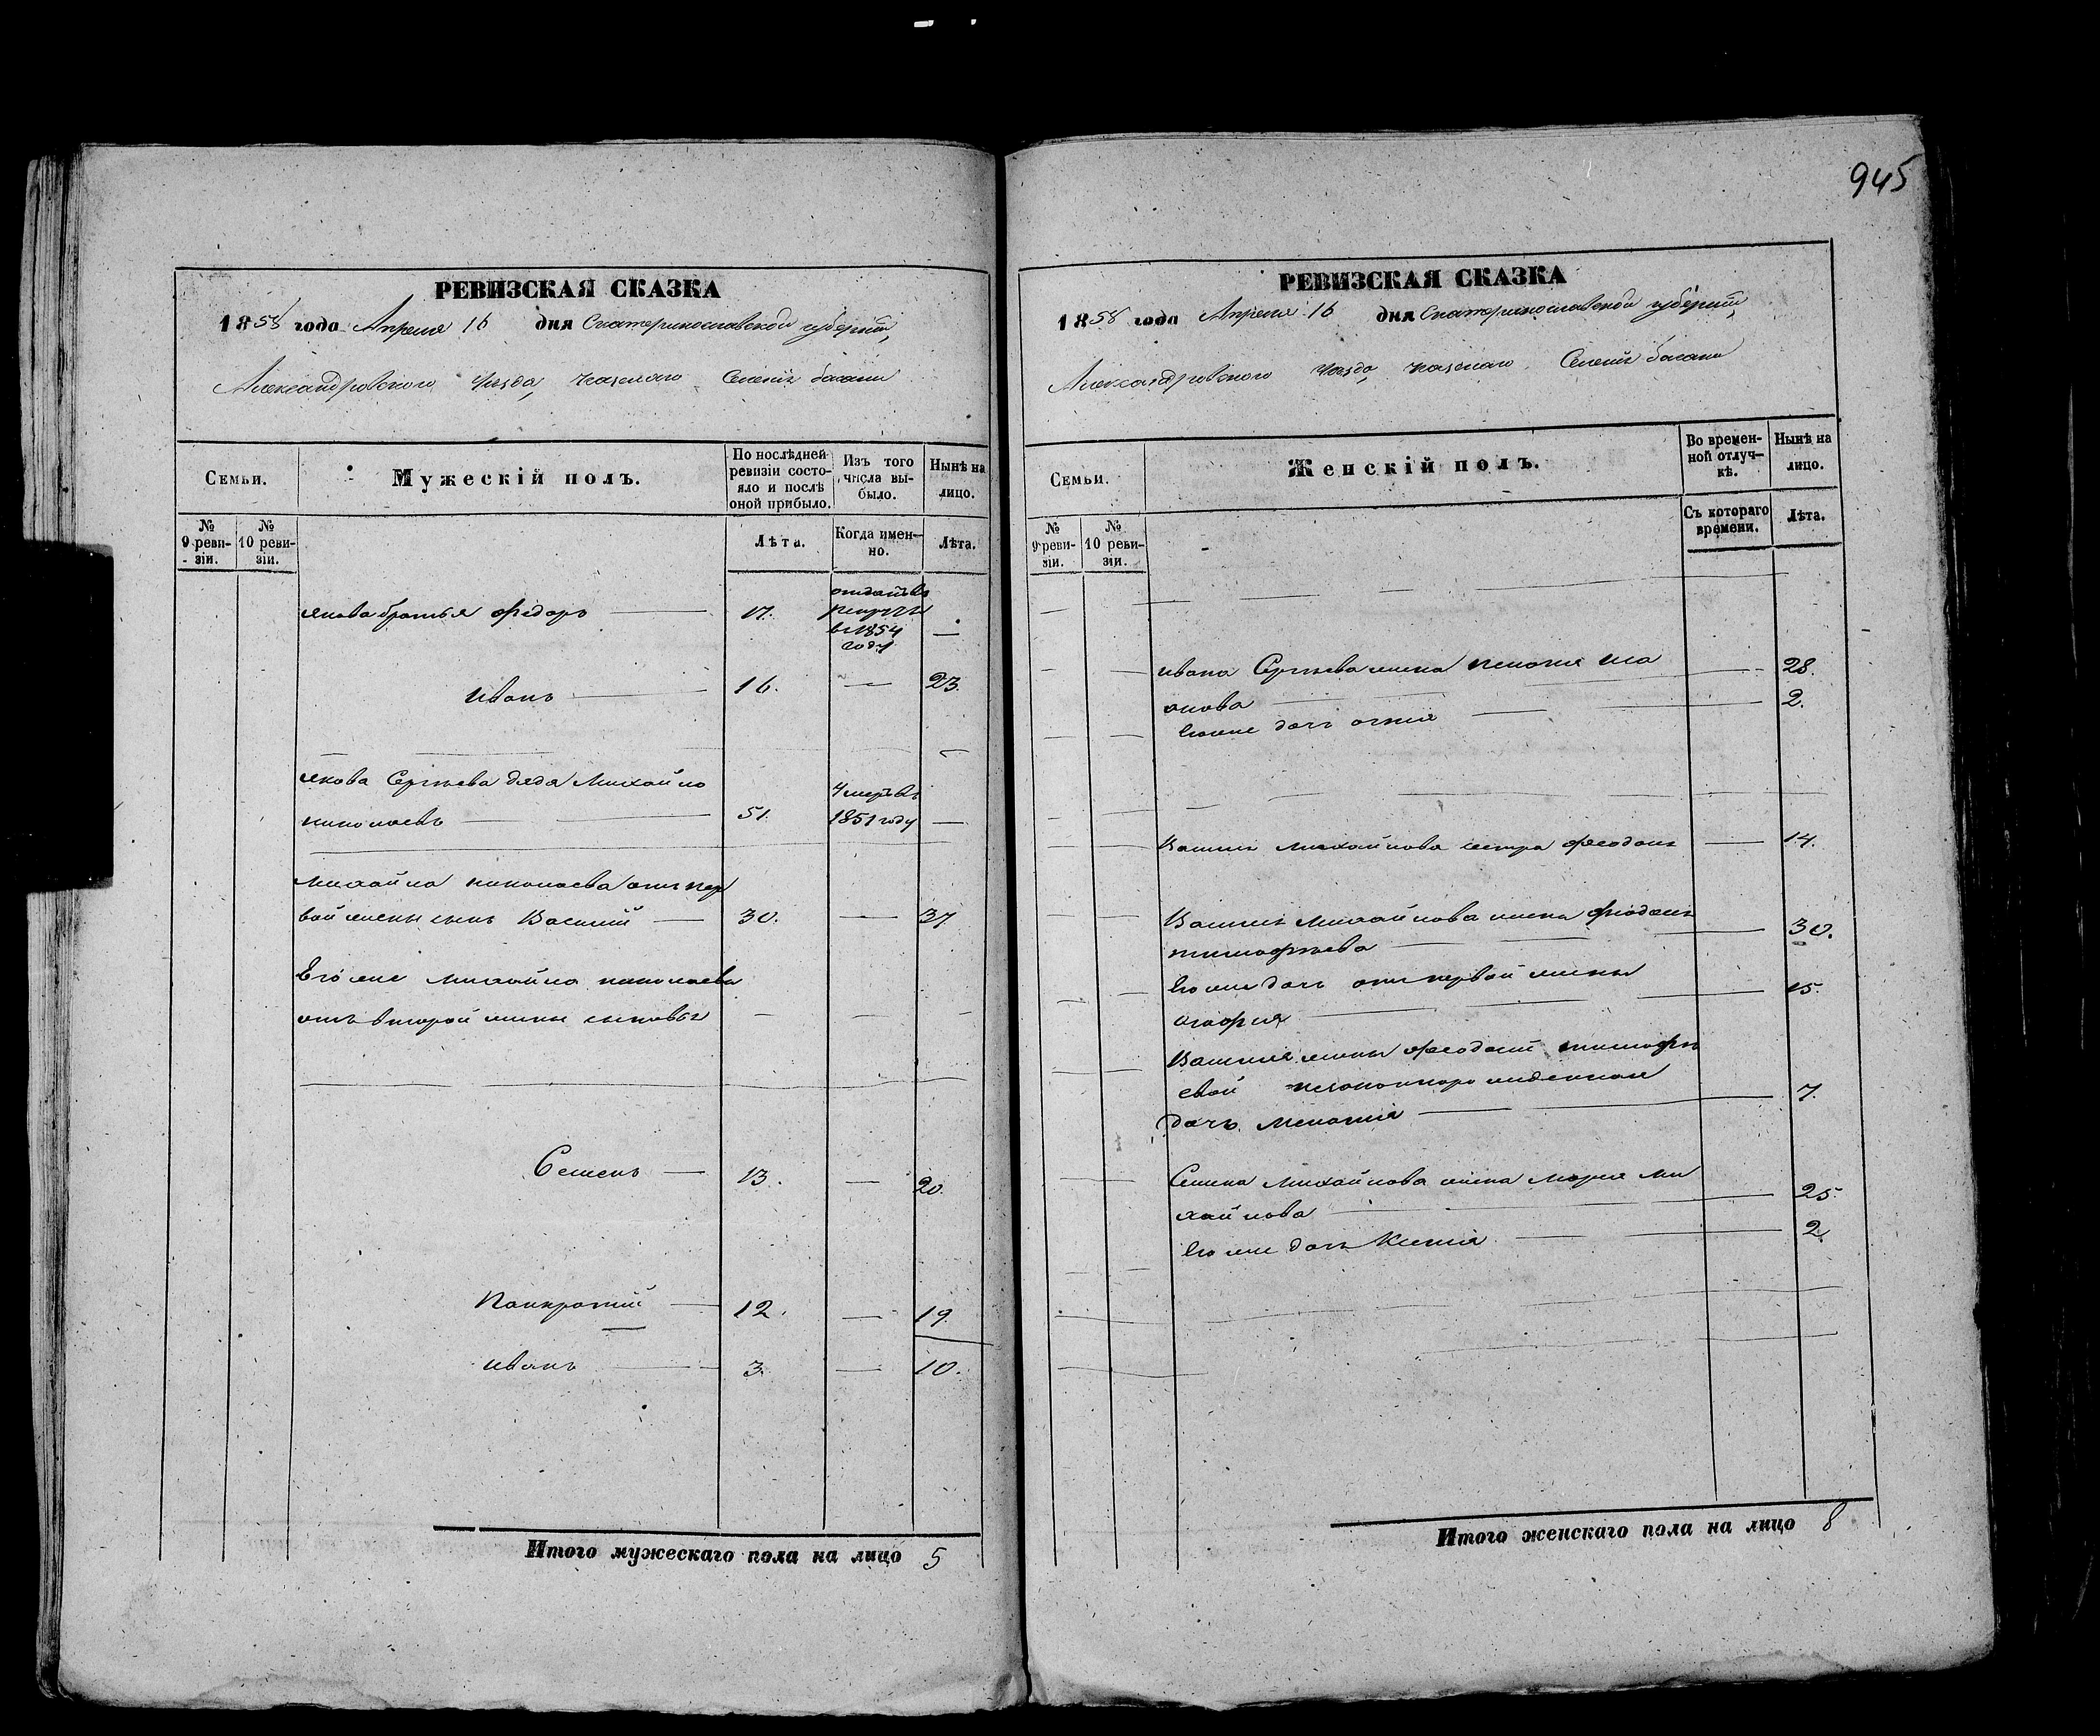 945
РЕВИЗСКАЯ СКАЗКА
1858 года Апреля 16 дня Екатеринославской губернии,
Александровского уезда, казенаго Селения басани
Семьи.
Мужескій полъ.
По послѣдней ревизіи состо-
яло и послѣ
оной прибыло.
Изъ того
числа вы-
было.
Нынѣ на
лицо.
№
9 реви-
зіи.
№
10 реви-
зіи.
Лѣта.
Когда имен-
но.
Лѣта.
якова братья федоръ — 17. отданъ въ
рекруты
въ 1854
году —
Иванъ — 16. — 23.
якова Сергѣева дядя Михайло
николаевъ — 51. умеръ въ
1851 году —
Михайла николаева отъ пер
вой жены сынъ Василий — 30. — 37
Его же Михайла николаева
отъ второй жены сыновья — — —
Семенъ — 13. — 20.
Панкратий — 12. — 19.
иванъ — 3. — 10.
Итого мужескаго пола на лицо 5
РЕВИЗСКАЯ СКАЗКА
1858 года Апреля 16 дня Екатеринославской губернии,
Александровского уезда, казенаго Селения басани
Семьи.
Женскій полъ.
Во времен-
ной отлуч-
кѣ.
Нынѣ на
лицо.
№
9 реви-
зіи.
№
10 реви-
зіи.
Съ котораго
времени.
Лѣта.
ивана Сергѣева жена
— 28.
его же дочь — 2.
Василия Михайлова сестра феодосия — 14.
Василия Михайлова жена феодосия
тимофѣева — 30.
его же дочь отъ первой жены
агафия — 15.
Василия жены феодосии тимофѣ
евой незаконнорожденная
дочь Мелания — 7.
Семена Михайлова жена Мария Ми
хайлова — 25.
его же дочь Ксения — 2.
Итого женскаго пола на лицо 8